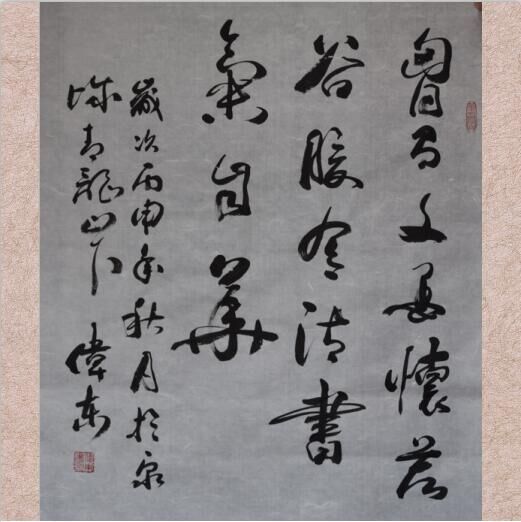 胷有文墨懷若
谷腹有詩書
氣自華
歲次丙申年秋月於泉
城青龍山下 偉東